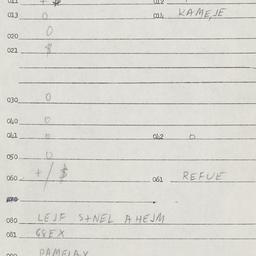 013 0 014 KAMEJE
020 0
021 $
030 0
040 0
041 0 042 0
050 0
060 +/$ 061 REFUE
080 LEJF S+NEL AHEJM
081 G8EX
PAMELAX